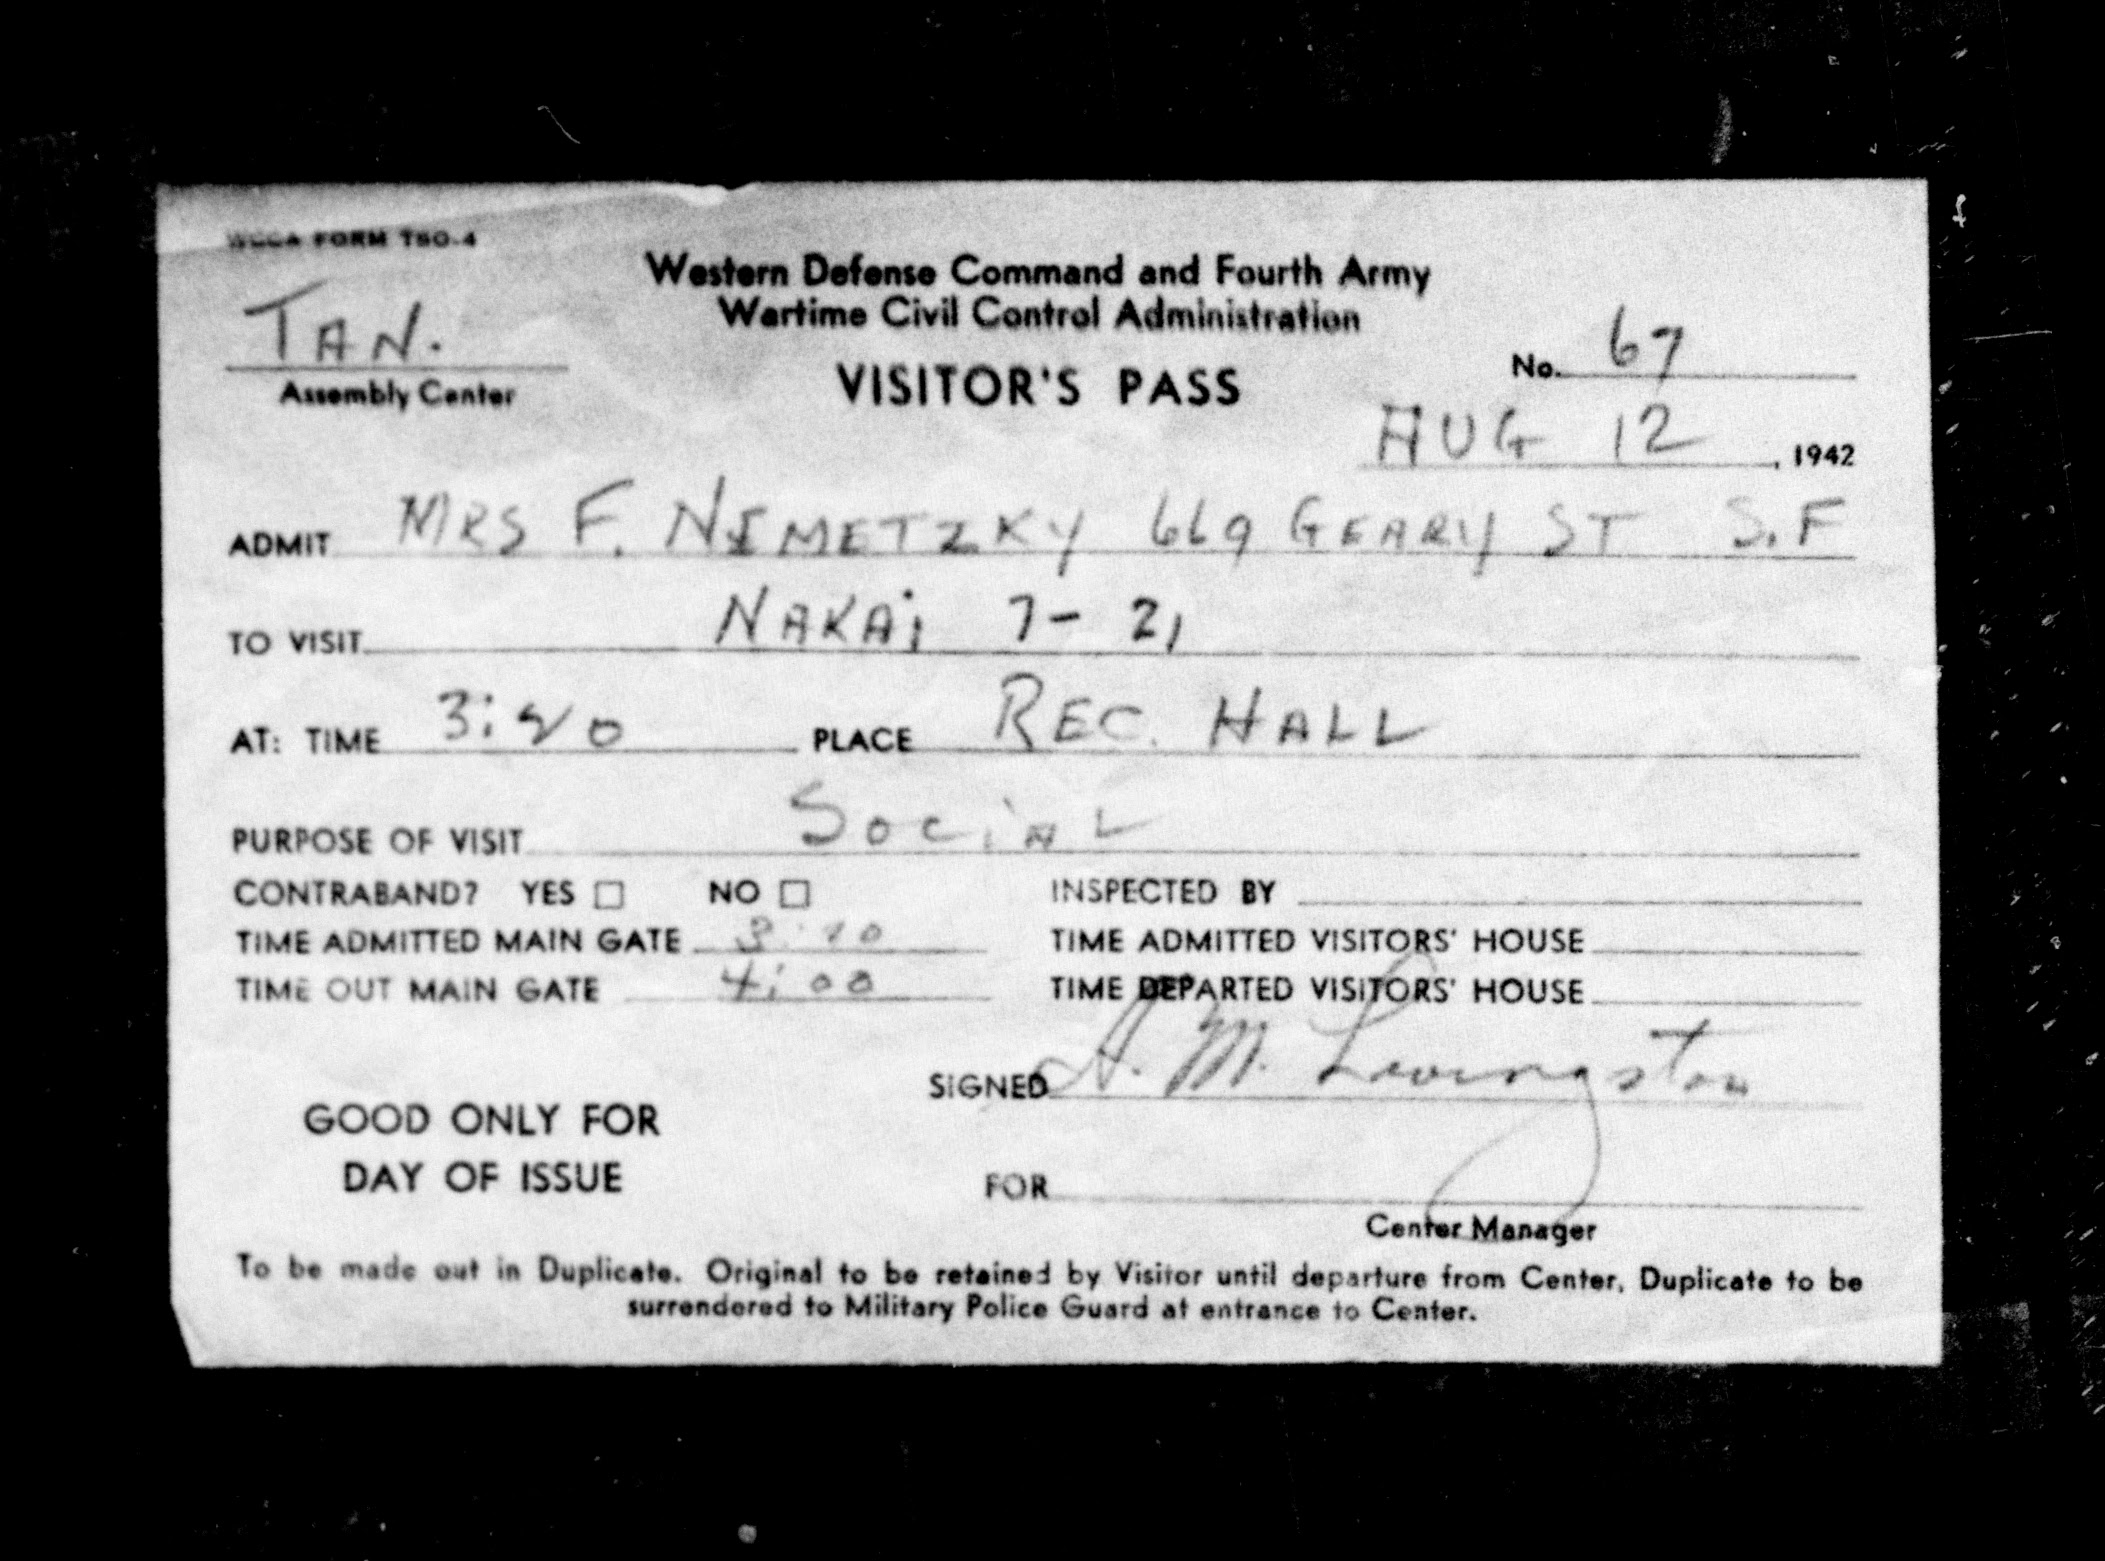 WCCA FORM TSO-4
Western Defense Command and Fourth Army
Wartime Civil Control Administration
TAN.
Assembly Center
VISITOR'S PASS
No. 67
AUG 12, 1942
ADMIT MRS F. NEMETZKY 669 GEARY ST S.F
TO VISIT NAKAi 7-21
AT: TIME 3:20 PLACE REC. HALL
PURPOSE OF VISIT SOCiAL
CONTRABAND? YES ☐ NO ☐ INSPECTED BY
TIME ADMITTED MAIN GATE TIME ADMITTED VISITORS' HOUSE
TIME OUT MAIN GATE 4:00 TIME DEPARTED VISITORS' HOUSE
SIGNED A. M. Livingston
GOOD ONLY FOR
DAY OF ISSUE
FOR
Center Manager
To be made out in Duplicate. Original to be retained by Visitor until departure from Center, Duplicate to be
surrendered to Military Police Guard at entrance to Center.